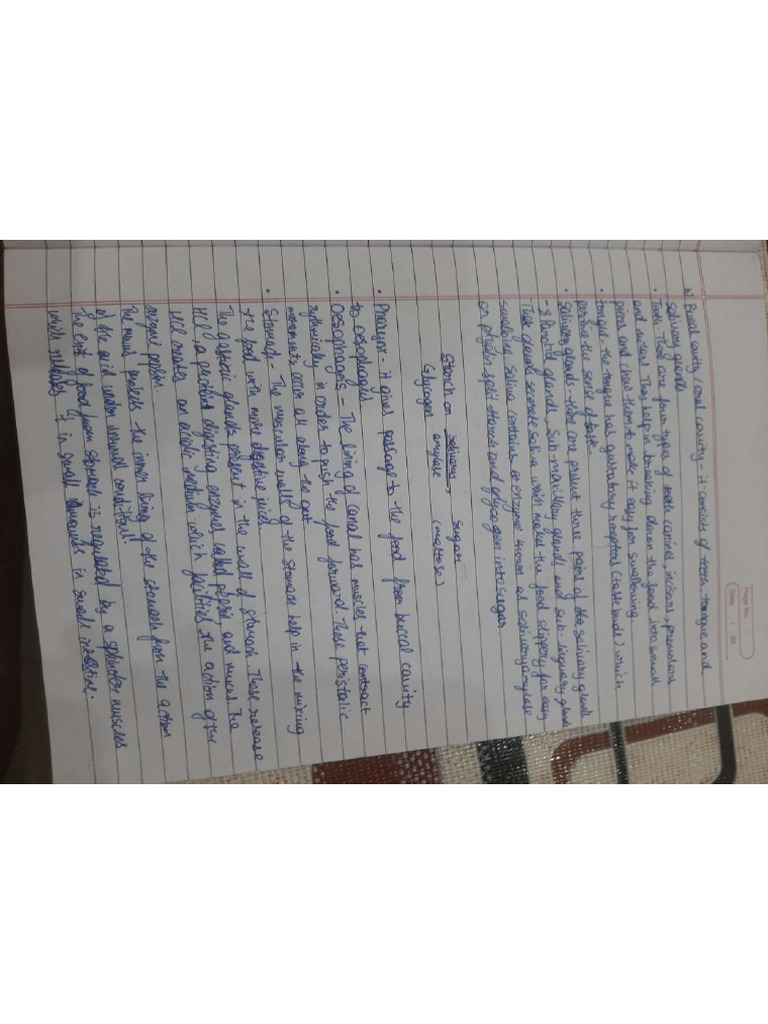 Page No.
Date / 20
b) Buccal cavity / oral cavity - it consists of teeth, tongue and
salivary glands
• Teeth - There are four types of teeth canines, incisors, premolars
and molars. They help in breaking down the food into small
pieces and chews them to make it easy for swallowing.
• Tongue - the tongue has gustatory receptors (taste buds) which
perceive the sense of taste.
• Salivary glands - there are present three pairs of the salivary glands
→ Parotid glands, Sub-maxillary glands and sub-linguary glands
These glands secrete saliva which makes the food slippery for easy
swallowing. Saliva contains an enzyme known as salivary amylase
or ptyalin, split starch and glycogen into sugar.
Starch or salivary → Sugar
Glycogen amylase (maltose)
• Pharynx - it gives passage to the food from buccal cavity
to oesophagus
• Oesophagus - The lining of canal has muscles that contract
rythmically in order to push the food forward. These peristalic
movements occur all along the gut.
• Stomach - The muscular walls of the stomach help in the mixing
the food with more digestive juices
The gastric glands present in the walls of stomach. These release
HCl, a protein digesting enzymes called pepsin, and mucus. The
HCl creates an acidic medium which facilities the action of the
enzyme pepsin
The mucus protects the inner lining of the stomach from the action
of the acid under normal conditions.
The exit of food from stomach is regulated by a sphincter muscles
which releases it in small amounts in small intestine.